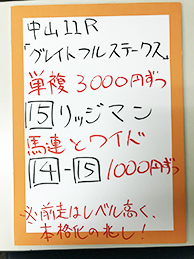 中山11R
「グレイトフルステークス」
単複3000円ずつ
15リッジマン
馬連とワイド
14-15 1000円ずつ
※前走はレベル高く、
本格化の兆し!